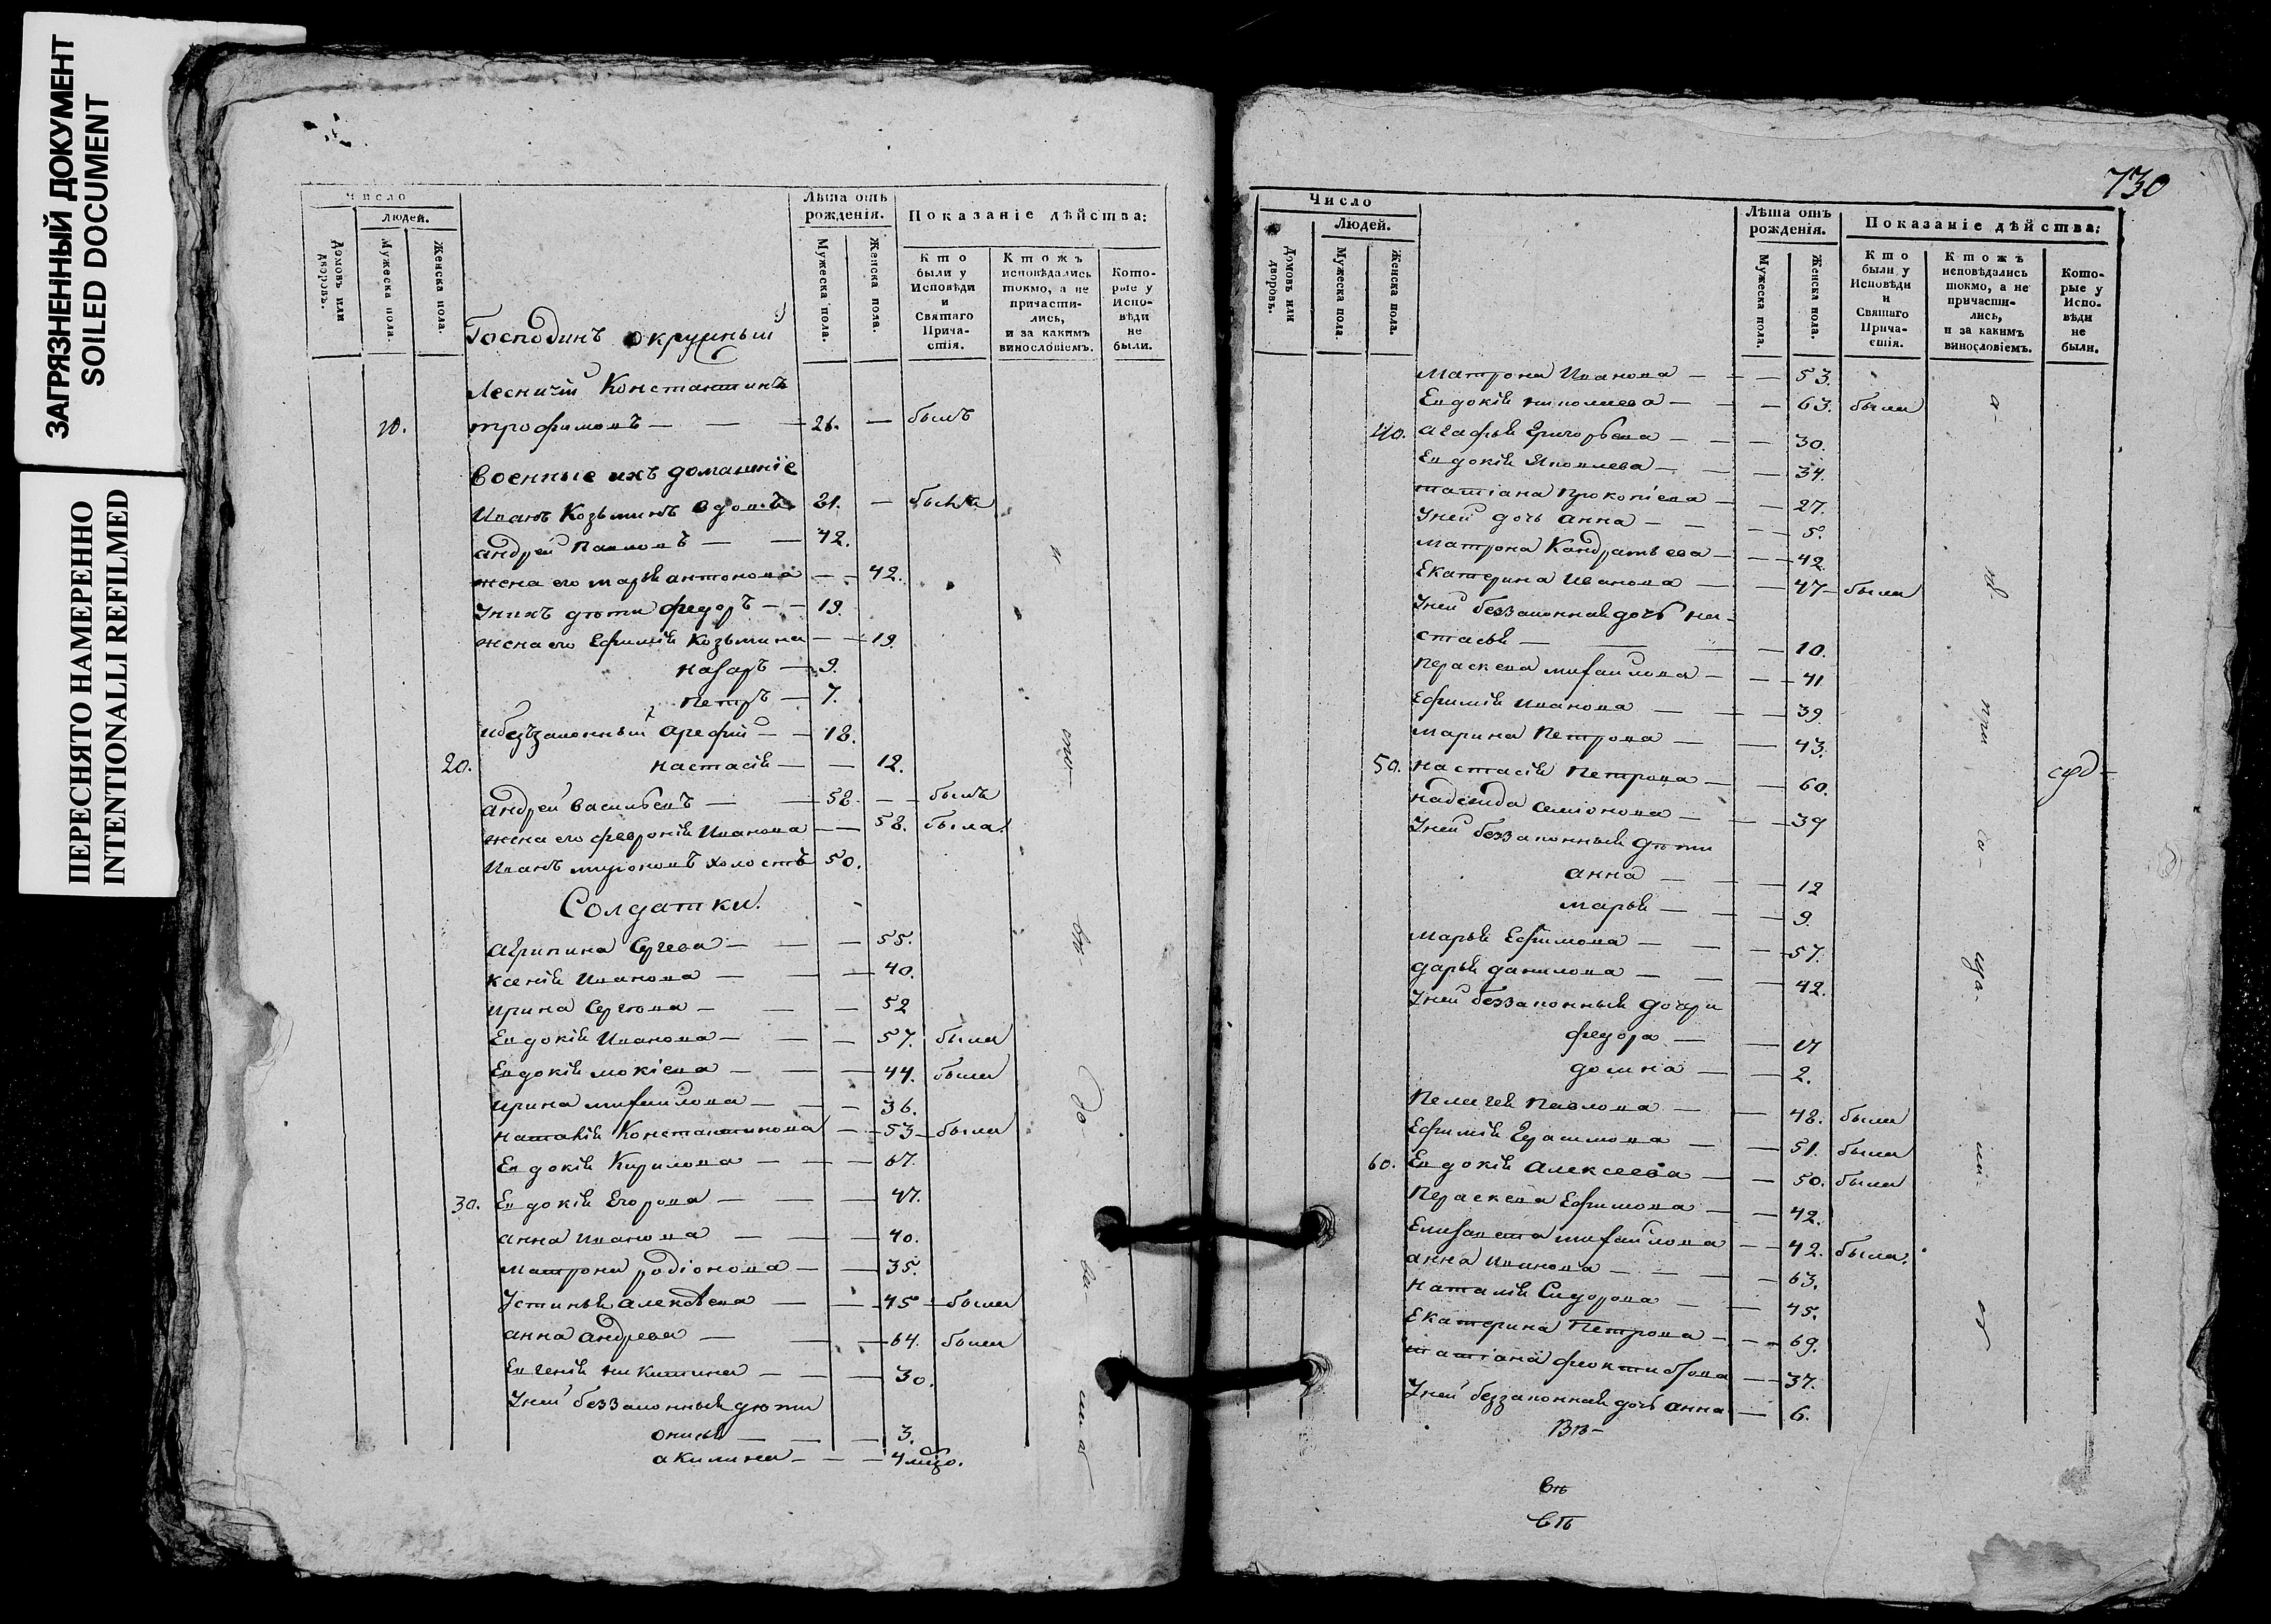 ЗАГРЯЗНЕННЫЙ ДОКУМЕНТ
SOILED DOCUMENT
ПЕРЕСНЯТО НАМЕРЕННО
INTENTIONALLI REFILMED
Число
Людей.
Домовъ или дворовъ.
Мужеска пола.
Женска пола.
Лѣта отъ рожденія.
Мужеска пола.
Женска пола.
Показаніе дѣйства:
Кто были у Исповѣди и Святаго Причастія.
Ктожъ исповѣдались токмо, а не причастились, и за какимъ винословіемъ.
Которые у Исповѣди не были.
Господинъ окружный
Лесничій Константинъ
10. трофимовъ — — — 26. — былъ
военные ихъ домашніе
Иванъ Козьминъ вдовъ 21. —
андрей Павловъ — — 42.
жена его марья антонова — — 42.
Уних дѣти федоръ — — 19.
жена его Ефимія Козьмина — — 19.
назаръ — 9.
Петръ — 7.
Арефий — — 18.
20. настасія — — 12.
андрей васильевъ — — 58. — — былъ
жена его феврония Иванова — — 58. была
Иванъ мироновъ холостъ 50.
Солдатки.
Агрипина Сергева — — — 55.
Ксенія Иванова — — — 40.
ирина Сергеева — — — 52
Евдокія Иванова — — — 57. была
Евдокія мокіева — — — 44. была
ирина михаилова — — — 36.
наталия Константинова — — 53 — была
Евдокія Кирилова — — — 67.
30. Евдокія Егорова — — — 47.
анна Иванова — — — 40.
матрона родіонова — — 35.
Устинья алексѣева — — — 45 — была
анна андреева — — — 64. была
Евгенія никитина — — — 30.
Уней беззаконныя дѣти
— — — 3.
акилина — — — 4
730
Число
Людей.
Домовъ или дворовъ.
Мужеска пола.
Женска пола.
Лѣта отъ рожденія.
Мужеска пола.
Женска пола.
Показаніе дѣйства:
Кто были у Исповѣди и Святаго Причастія.
Ктожъ исповѣдались токмо, а не причастились, и за какимъ винословіемъ.
Которые у Исповѣди не были.
Матрона Иванова — — — 53.
Евдокія — — — 63. была
40. агафья Григорьева — — — 30.
Евдокія Яковлева — — — 34.
татіана Прокопіева — — 27.
Уней дочь анна — — — 5.
матрона Кандратьева — — — 42
Екатерина Иванова — — 47 — была
Уней беззаконная дочь на-
стасья — — — — 10.
Пераскева михаилова — — — 41
Ефимія Иванова — — — 39
марина Петрова — — 43.
50. настасія Петрова — — 60.
надежда семіонова — — — 39
Уней беззаконныя дѣти
анна — — — 12
марья — — — 9.
марья Ефимова — — — 57.
дарья данилова — — — 42.
Уней беззаконныя дочери
федора — —
— — 2.
Пелагея Павлова — — 48. была
Ефимія Герасимова — — 51. была
60. Евдокія Алексеева — — 50. была
Пераскева Ефимова — — 42.
Елизавета михаилова — — 42. была.
анна Иванова — — — — 63.
наталія Сидорова — — 45.
Екатерина Петрова — — — 69.
татіана — — 37.
Уней беззаконная дочь анна — 6.